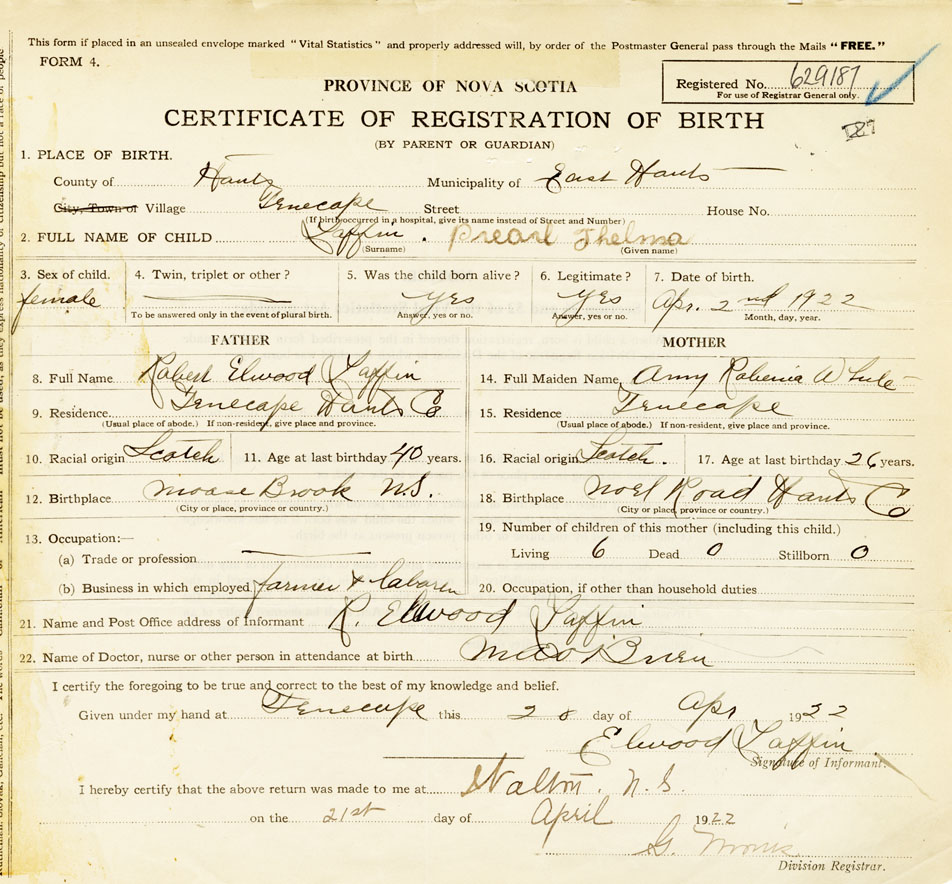 This form if placed in an unsealed envelope marked "Vital Statistics" and properly addressed will, by order of the Postmaster General pass through the Mails "FREE."
FORM 4.
Registered No. 629187
For use of Registrar General only.
PROVINCE OF NOVA SCOTIA
CERTIFICATE OF REGISTRATION OF BIRTH
(BY PARENT OR GUARDIAN)
1. PLACE OF BIRTH.
County of Hants Municipality of East Hants
City, Town or Village Tenecape Street House No.
(If birth occurred in a hospital, give its name instead of Street and Number)
2. FULL NAME OF CHILD Laffin. Prearl Thelma
(Surname) (Given name)
3. Sex of child. 4. Twin, triplet or other? 5. Was the child born alive? 6. Legitimate? 7. Date of birth.
female yes yes Apr. 2nd 1922
To be answered only in the event of plural birth. Answer, yes or no. Answer, yes or no. Month, day, year.
FATHER MOTHER
8. Full Name Robert Elwood Laffin 14. Full Maiden Name Amy
9. Residence Tenecape Hants Co 15. Residence Tenecape
(Usual place of abode.) If non-resident, give place and province. (Usual place of abode.) If non-resident, give place and province.
10. Racial origin Scotch 11. Age at last birthday 40 years. 16. Racial origin Scotch. 17. Age at last birthday 26 years.
12. Birthplace Moose Brook N.S. 18. Birthplace Noel Road Hants Co
(City or place, province or country.) (City or place, province or country.)
13. Occupation:— 19. Number of children of this mother (including this child.)
(a) Trade or profession Living 6 Dead 0 Stillborn 0
(b) Business in which employed farmer & laborer 20. Occupation, if other than household duties
21. Name and Post Office address of Informant R. Elwood Laffin
22. Name of Doctor, nurse or other person in attendance at birth O'Brien
I certify the foregoing to be true and correct to the best of my knowledge and belief.
Given under my hand at Tenecape this 20 day of Apr 1922
Elwood Laffin
Signature of Informant.
I hereby certify that the above return was made to me at Walton. N.S.
on the 21st day of April 1922
G. Morris
Division Registrar.